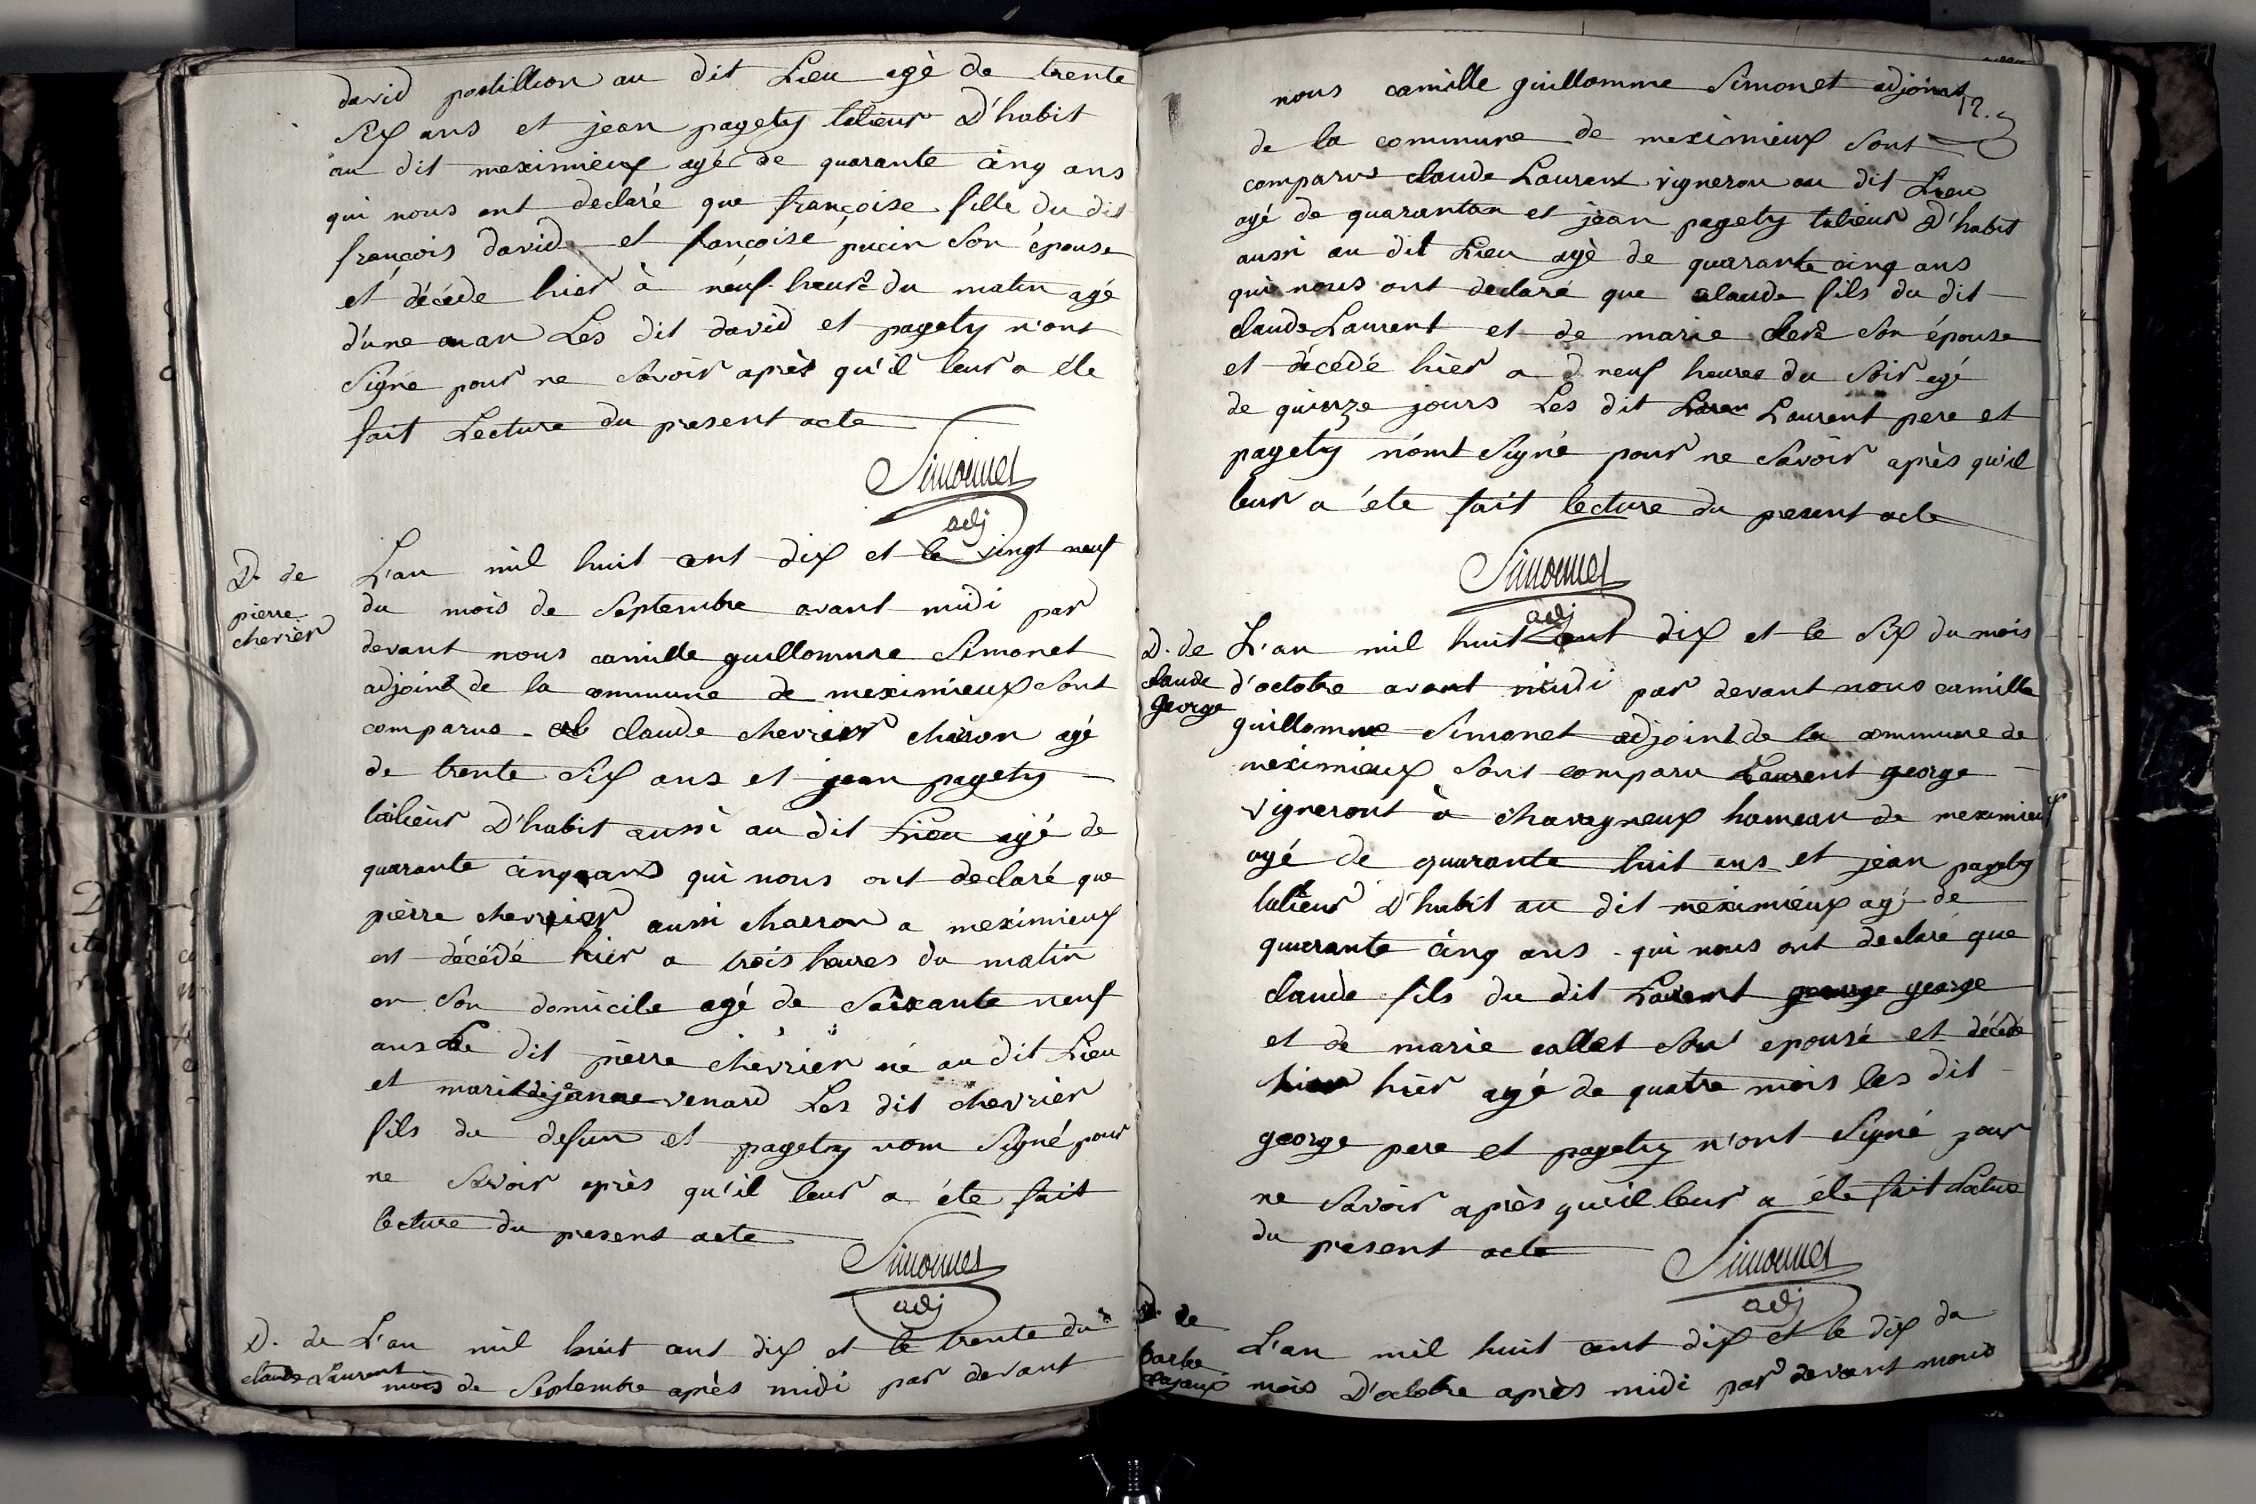 david postillion au dit Lieu agé de trente
Six ans et jean pagety talieur D'habit
au dit meximieux agé de quarante cinq ans
qui nous ont declaré que françoise fille du dit
françois david et françoise pucin Son épouse
et décéde hier à neuf heure du matin agé
d'une an Les dit david et pagety n'ont
Signé pour ne Savoir après qu'il leur a éte
fait Lecture du present acte
Simonnet
adj
D. de
pierre
cherier
L'an mil huit cent dix et le vingt neuf
du mois de Septembre avant midi par
devant nous camille guillomme Simonet
adjoint de la commune de meximieux Sont
comparus claude chevrier charon agé
de trente Six ans et jean pagety
talieur D'habit aussi au dit Lieu agé de
quarante cinq ans qui nous ont declaré que
pierre chevrier aussi charron a meximieux
est décédé hier a trois heures du matin
en Son domicile agé de Soixante neuf
ans Le dit pierre chevrier né au dit Lieu
et marit de janne venard Les dit chevrier
fils du defun et pagety nom Signé pour
ne Savoir après qu'il leur a éte fait
lecture du present acte
Simonnet
adj
D. de
claude Laurent
L'an mil huit cent dix et le trente du
mois de Septembre après midi par devant
12.
nous camille guillomme Simonet adjoint
de la commune de meximieux Sont
comparus claude Laurent vigneron au dit Lieu
agé de quarantan et jean pagety talieur D'habit
aussi au dit Lieu agé de quarante cinq ans
qui nous ont declaré que claude fils du dit
claude Laurent et de marie Son épouse
et décédé hier a neuf heures du Soir agé
de quinze jours Les dit Laurent pere et
pagety n'ont Signé pour ne Savoir après qu'il
leur a éte fait lecture du present acte
Simonnet
adj
D. de
claude
george
L'an mil huit cent dix et le Six du mois
d'octobre avant midi par devant nous camille
guillomme Simonet adjoint de la commune de
meximieux Sont comparu Laurent george
vigneront à chavagneux hameau de meximieux
agé de quarante huit ans et jean pagety
talieur D'habit au dit meximieux agé de
quarante cinq ans qui nous ont declaré que
claude fils du dit Laurent george
et de marie callet Son epousé et décédé
hier agé de quatre mois les dit
george pere et pagety n'ont Signé pour
ne Savoir après qu'il leur a éte fait lectue
du present acte
Simonnet
adj
D. de
barbe
L'an mil huit cent dix et le dix du
mois D'octobre après midi par devant nous